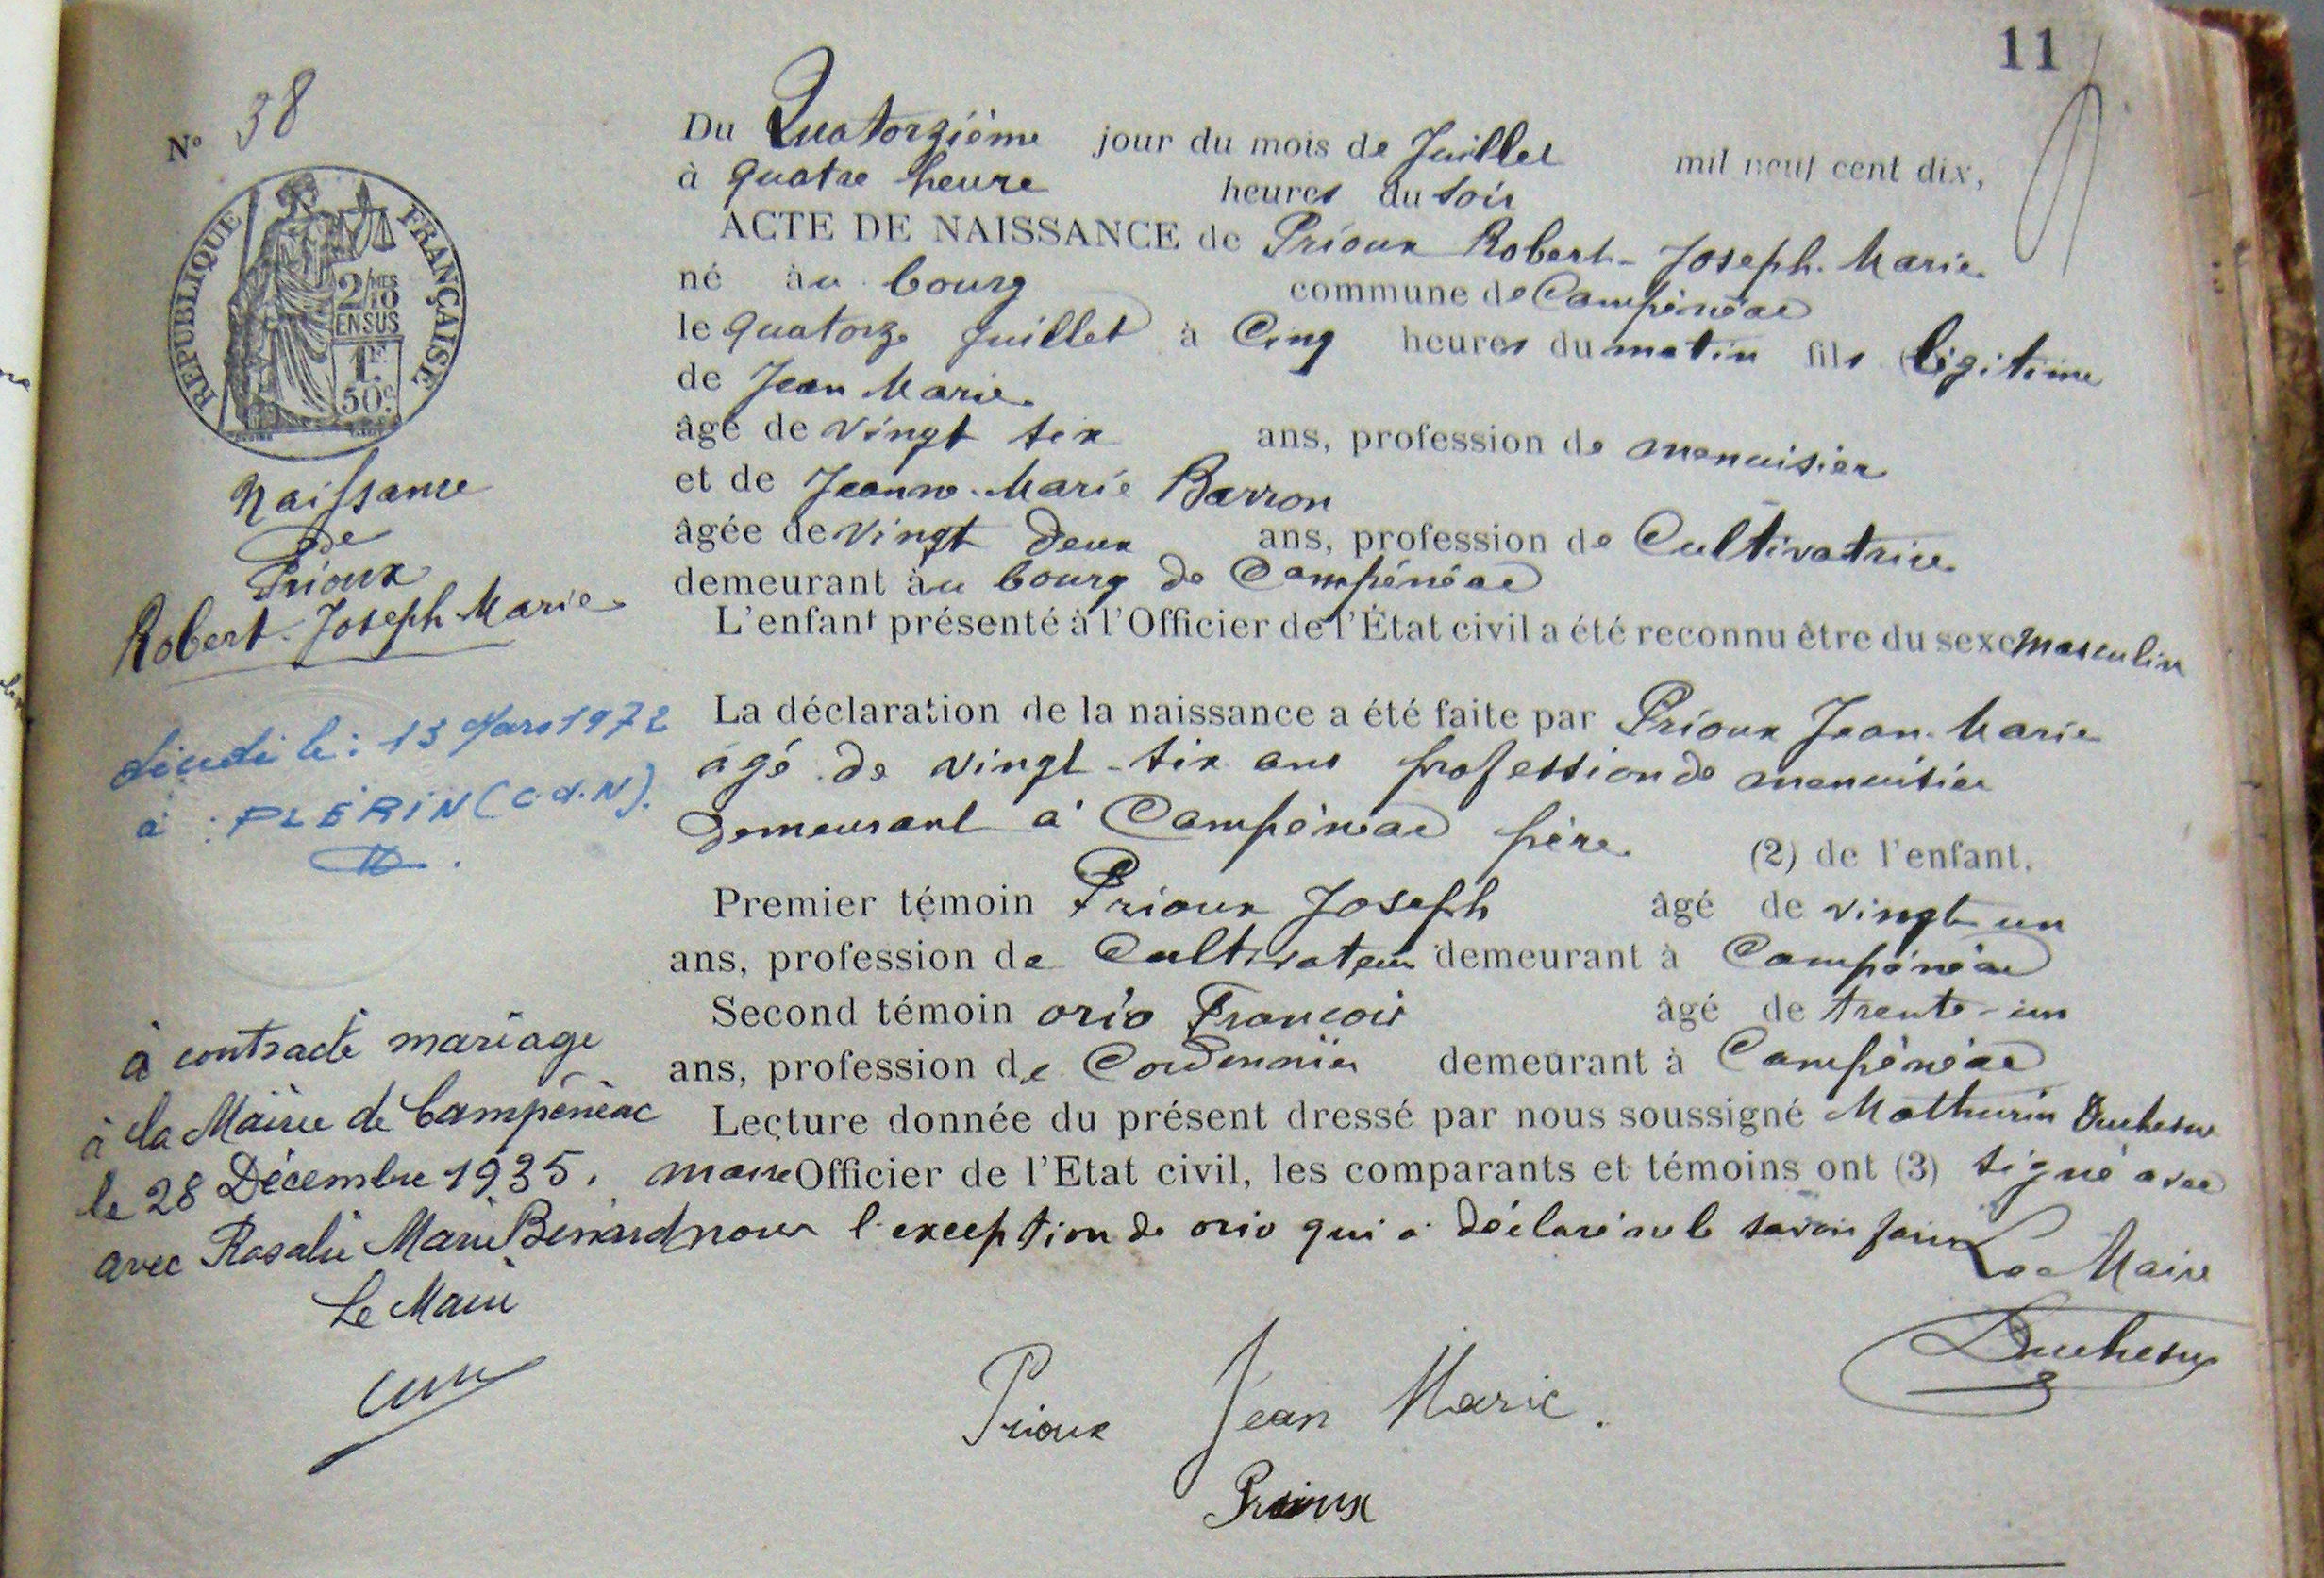 11
Nº 38
REPUBLIQUE FRANÇAISE
2/10 MES
EN SUS
1F.
50c.
Naissance
de
Prioux
Robert-Joseph-Marie
décédé le : 13 Mars 1972
à : PLÉRIN (C.d.N).
à contracté mariage
à la Mairie de Campénéac
le 28 Décembre 1935.
avec Rosalie Marie Benard
Le Maire
Du Quatorzième jour du mois de Juillet mil neuf cent dix,
à quatre heure heures du soir
ACTE DE NAISSANCE de Prioux Robert-Joseph-Marie
né àu bourg commune de Campénéac
le quatorze juillet à Cinq heures du matin fils légitime
de Jean Marie
âgé de vingt six ans, profession de menuisier
et de Jeanne-Marie Barron
âgée de vingt deux ans, profession de Cultivatrice
demeurant àu bourg de Campénéac
L'enfant présenté à l'Officier de l'État civil a été reconnu être du sexe masculin
La déclaration de la naissance a été faite par Prioux Jean-Marie
âgé de vingt-six ans profession de menuisier
Demeurant à Campénéac père (2) de l'enfant.
Premier témoin Prioux Joseph âgé de vingt un
ans, profession de Cultivateur demeurant à Campénéac
Second témoin orio François âgé de trente-un
ans, profession de Cordonnier demeurant à Campénéac
Lecture donnée du présent dressé par nous soussigné Mathurin Duchesne
maire Officier de l'Etat civil, les comparants et témoins ont (3) signé avec
nous l'exception de orio qui a déclaré ne le savoir faire
Le Maire
Duchesne
Prioux Jean Marie.
Prioux